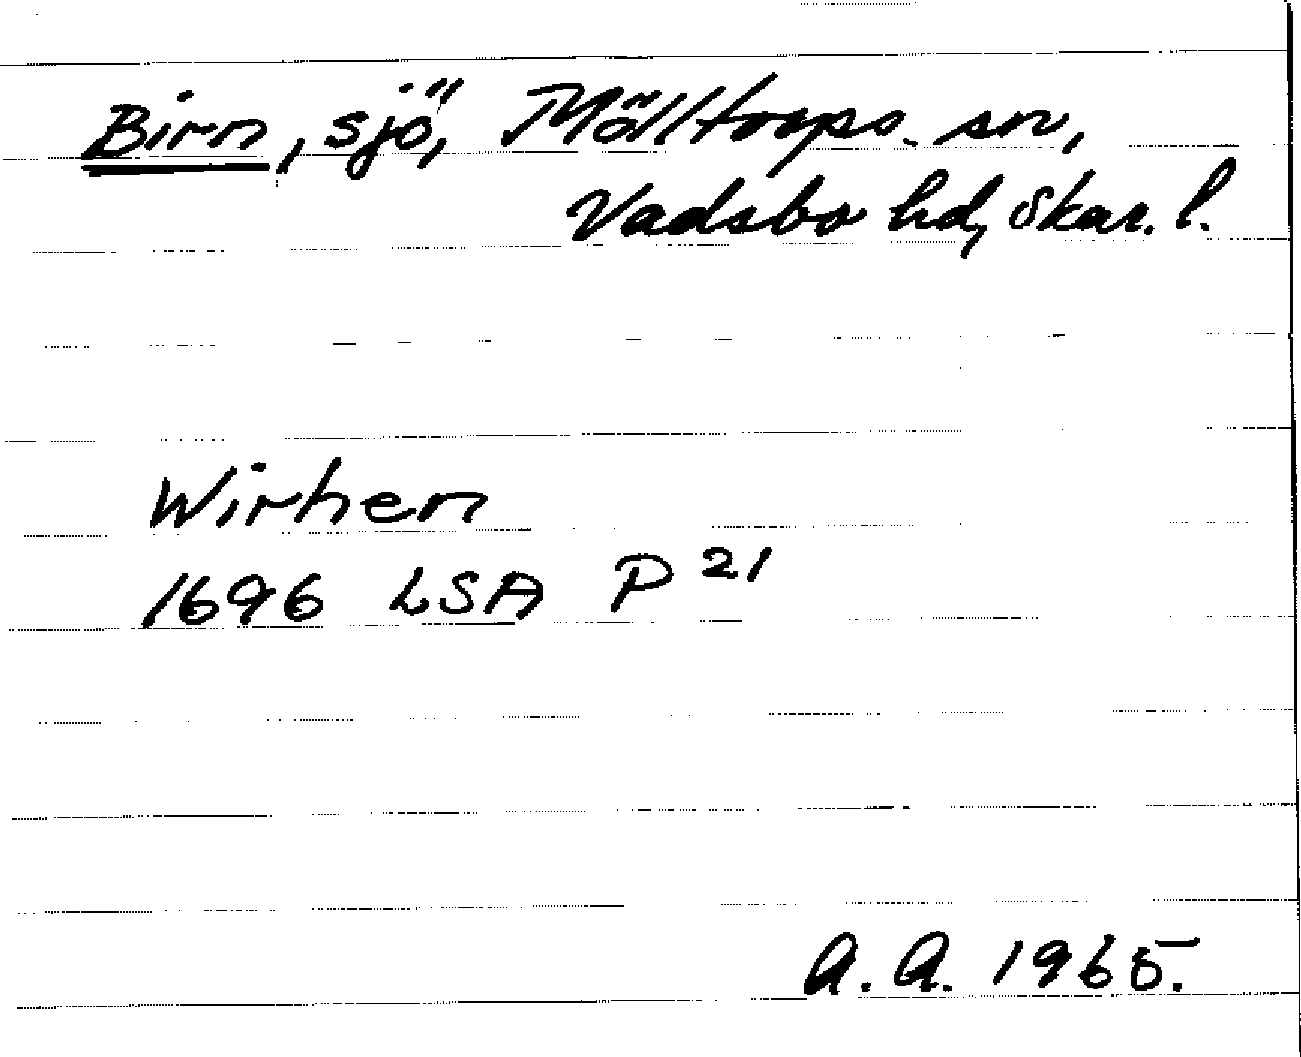 Birn, sjö, Mölltorps sn,
Vadsbo hd, Skar. l.
Wirhen
1696 LSA P 21
A. A. 1965.